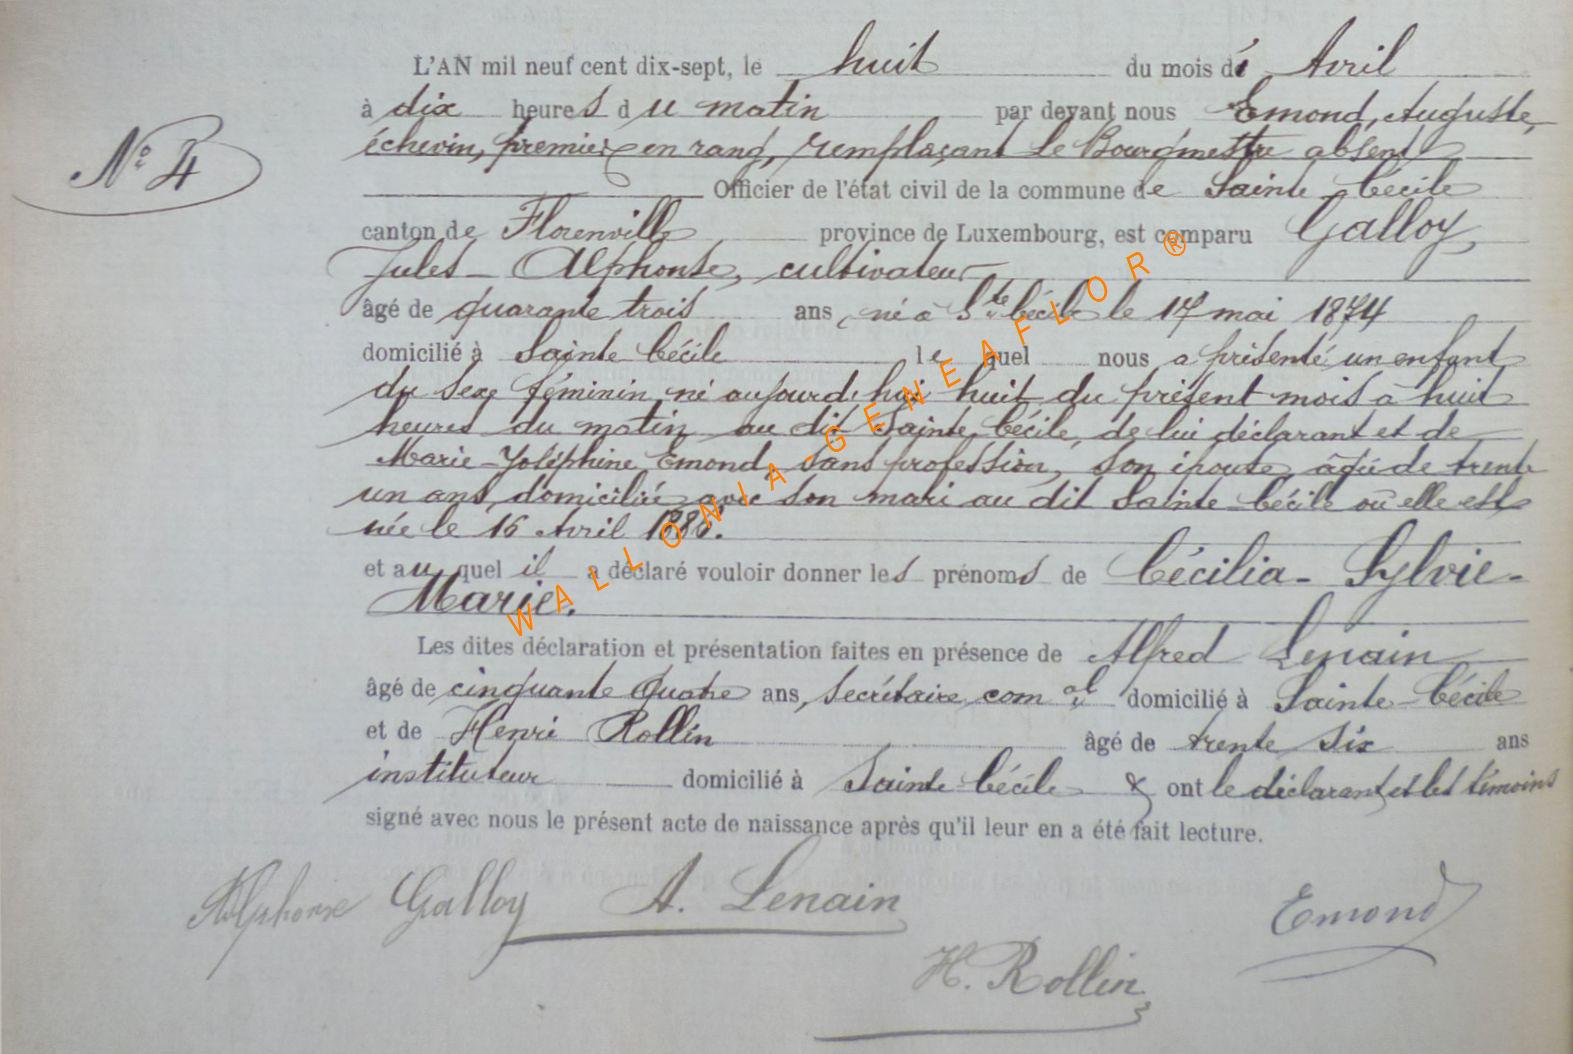 L'AN mil neuf cent dix-sept, le huit du mois de Avril
à dix heures du matin par devant nous Emond, Auguste,
échevin, premier en rang, remplaçant le Bourgmestre absent
N° 4
Officier de l'état civil de la commune de Sainte-Cécile
canton de Florenville province de Luxembourg, est comparu Galloy,
Jules-Alphonse, cultivateur
âgé de quarante trois ans, né à Ste Cécile le 17 mai 1874
domicilié à Sainte Cécile lequel nous a présenté un enfant
du sexe féminin né aujourd'hui huit du présent mois à huit
heures du matin au dit Sainte Cécile, de lui déclarant et de
Marie-Joséphine Emond, sans profession, son épouse, âgée de trente
un ans, domiciliée avec son mari au dit Sainte-Cécile où elle est
née le 16 Avril 1886.
et auquel il a déclaré vouloir donner les prénoms de Cécilia-Sylvie-
Marie.
Les dites déclaration et présentation faites en présence de Alfred Lenain
âgé de cinquante quatre ans, secrétaire comal domicilié à Sainte-Cécile
et de Henri Rollin âgé de trente six ans
instituteur domicilié à Sainte-Cécile & ont le déclarant et les témoins
signé avec nous le présent acte de naissance après qu'il leur en a été fait lecture.
Alphonse Galloy A. Lenain Emond
H. Rollin
WALLONIA-GENEAFLOR®